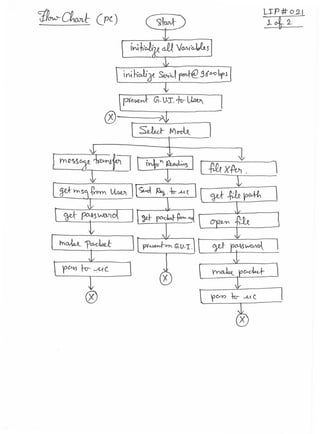 Flow Chart (PC)
LIP#021
1 of 2
Start
initialize all Variables
initialize Serial port@9600bps
present G.U.I. to User
X
Select Mode
message transfer
info^n Reading
file Xfer.
get msg from User
Send Req to uC
get file path
get password
get packet from uc
open file
make Packet
present on G.U.I.
get password
pass to uC
X
make packet
X
pass to uC
X